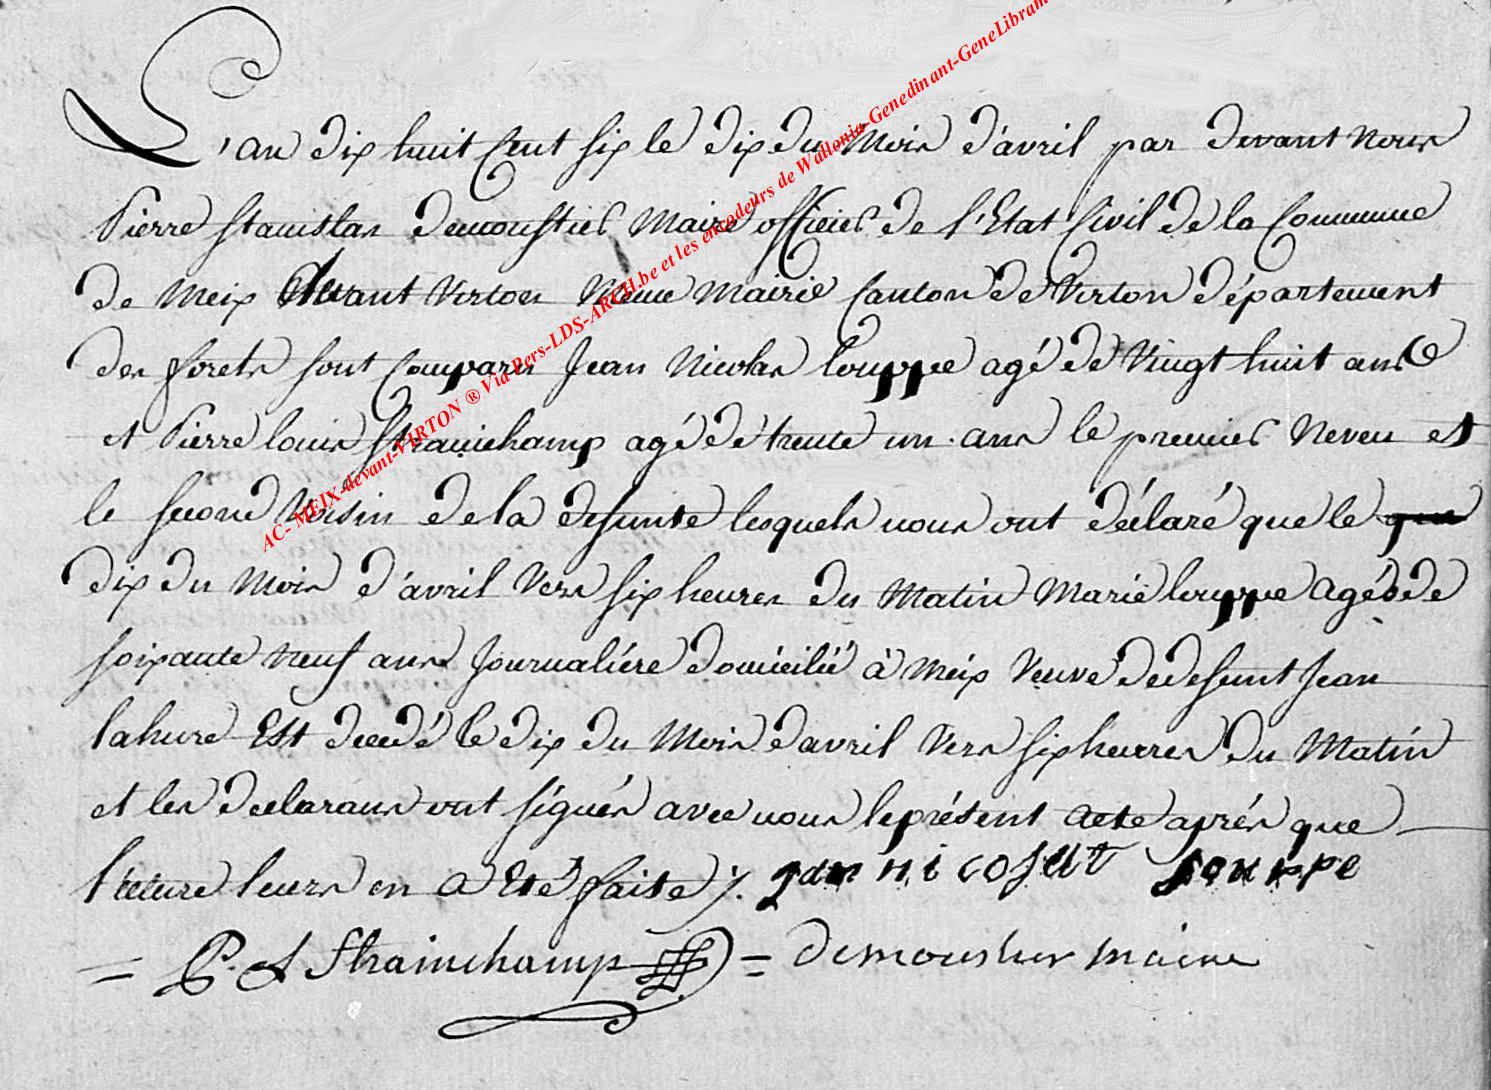 L'an dix huit Cent six le dix du Mois d'avril par devant Nous
Pierre Stanislas demoustier Maire officier de l'Etat Civil de la Commune
de Meix devant Virton Même Mairie Canton de Virton département
des forets sont Comparus Jean Nicolas louppe agé de Vingt huit ans
et Pierre louis Strainchamp agé de trente un ans le premier Neveu et
le second Voisin de la defunte lesquels nous ont déclaré que le
dix du Mois d'avril Vers six heures du Matin Marie louppe agée de
soixante Neuf ans Journaliére domicilié à Meix Veuve de defunt Jean
lahure Est decedé le dix du Mois d'avril Vers six heures du Matin
et les declarans ont signés avec nous le présent acte aprés que
lecture leurs en a Eté faite ·/. jean nicolas louppe
= P. L Strainchamp = demoustier maire
AC- MEIX-devant-VIRTON ® Via Pers-LDS-ARCH.be et les encodeurs de Wallonia-Genedinant-GeneLibram